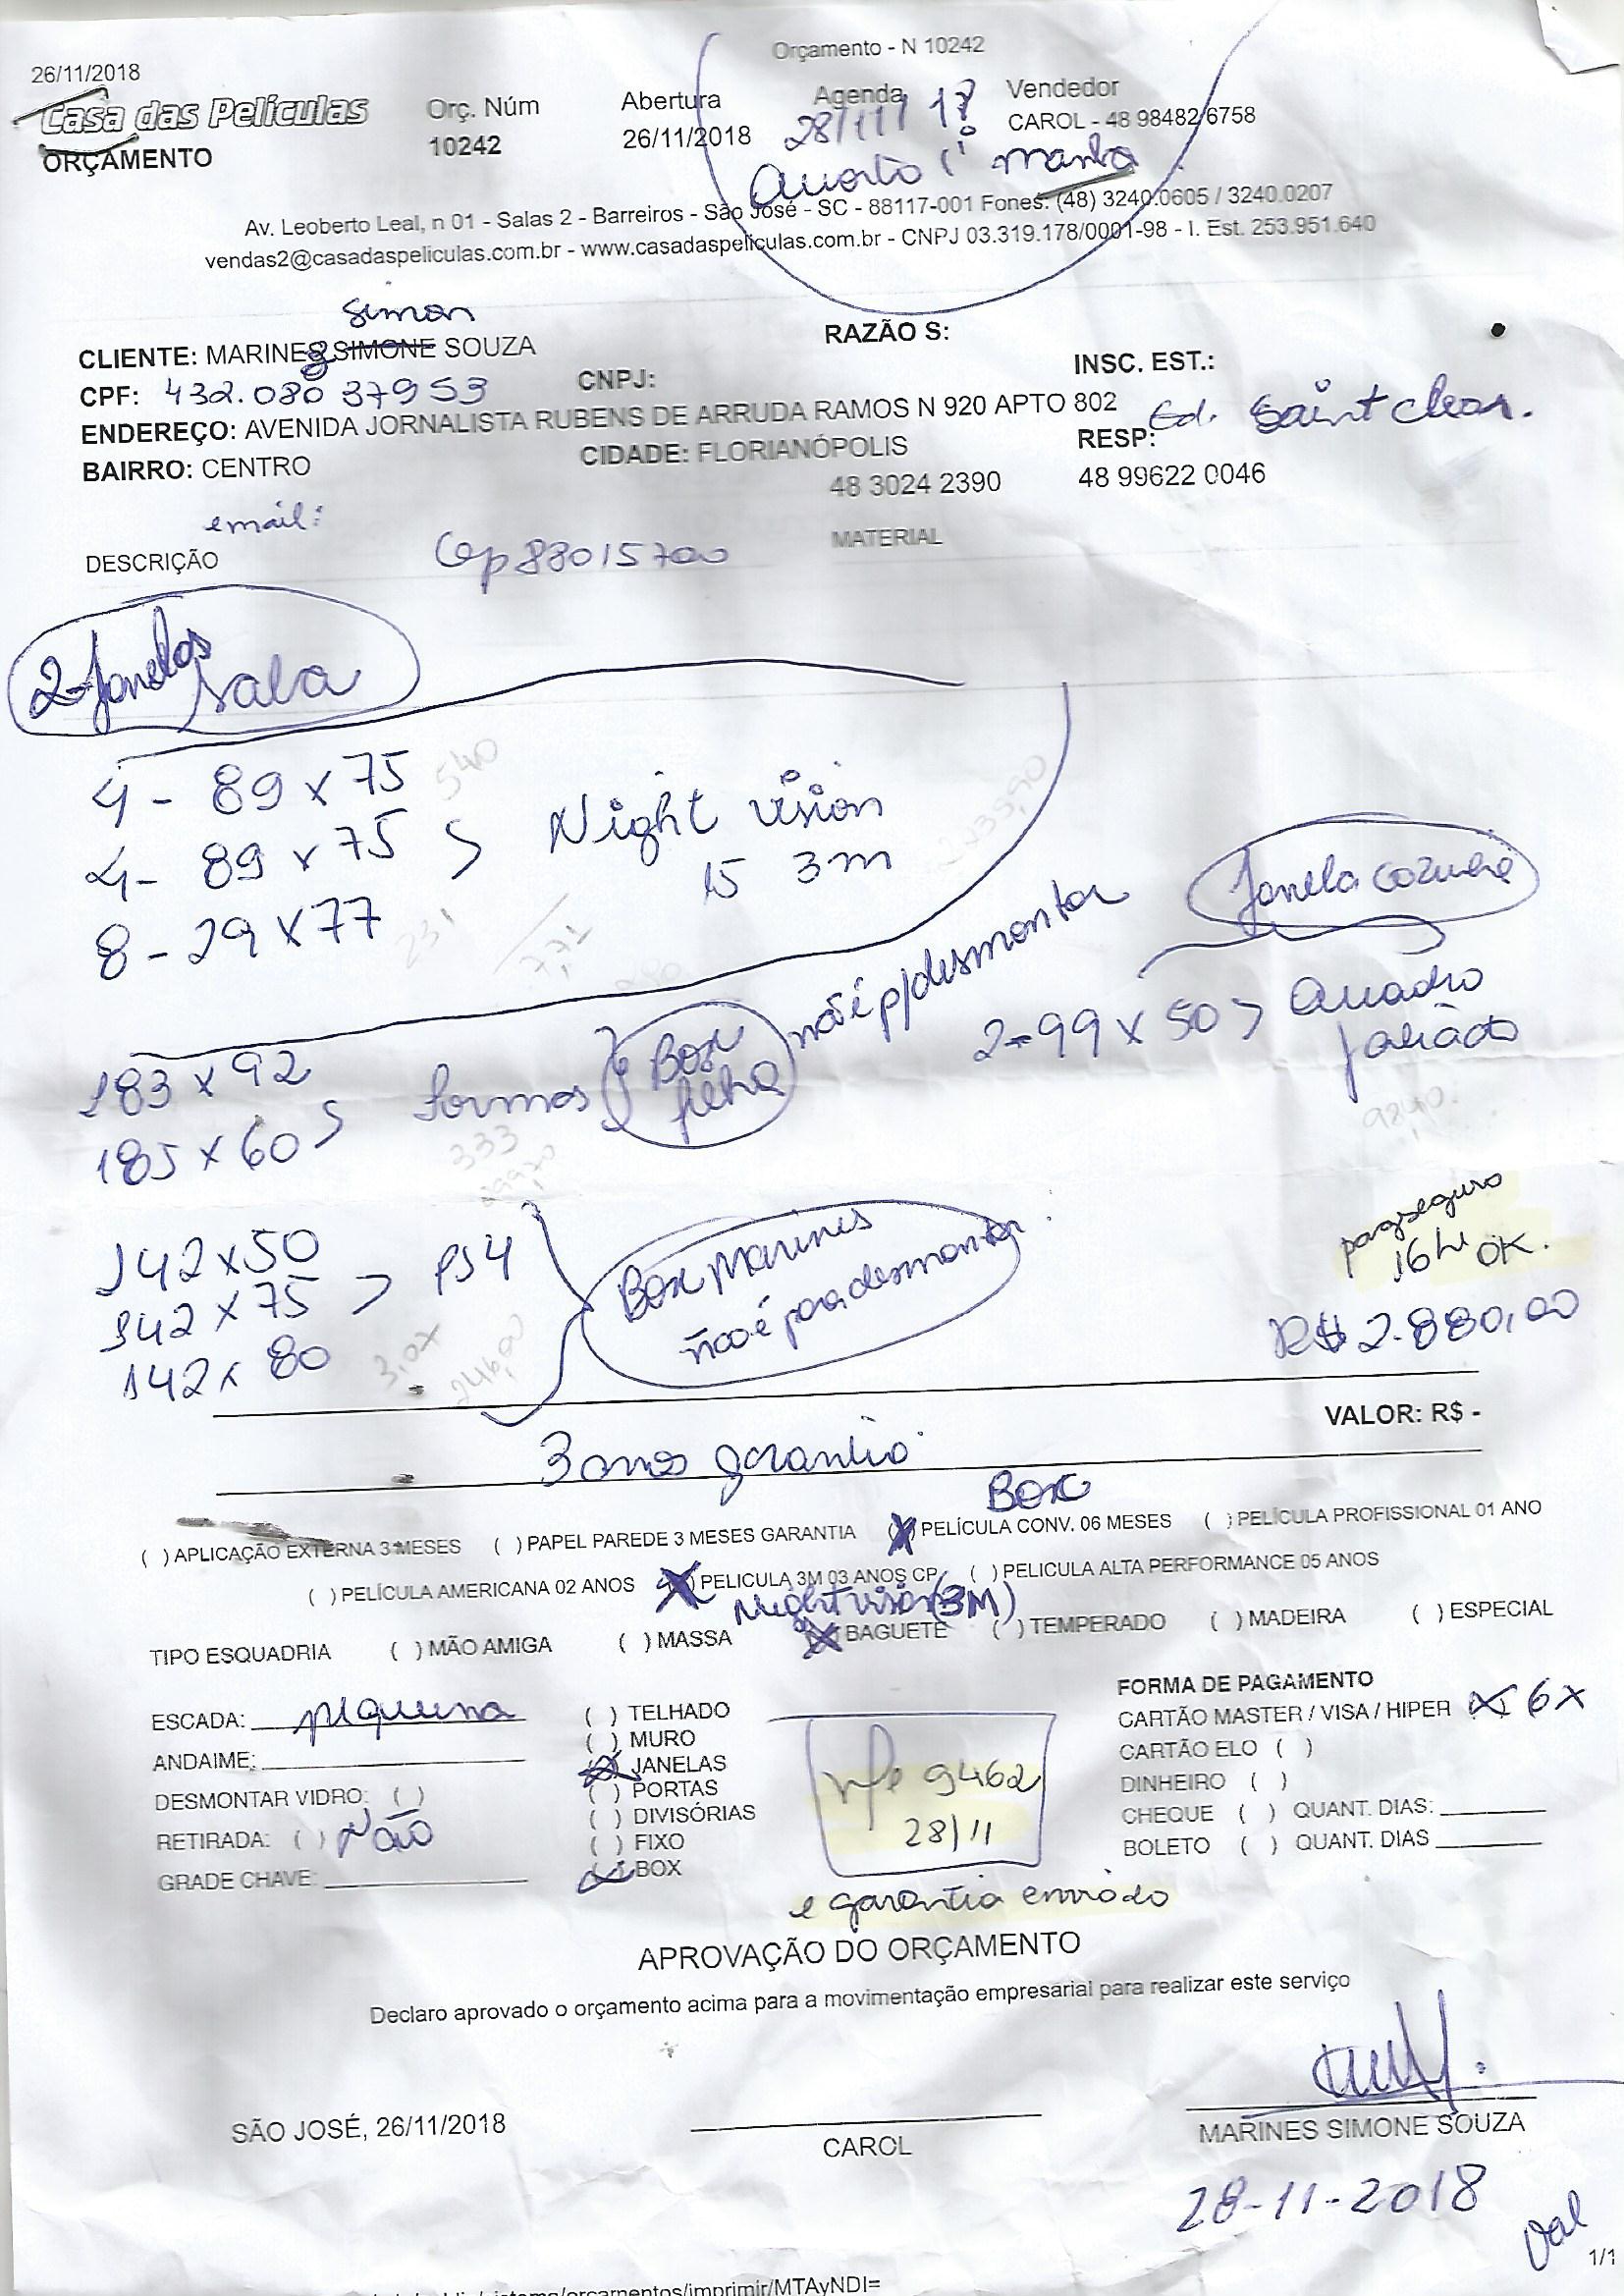 Orçamento - N 10242
26/11/2018
Casa das Películas
ORÇAMENTO
Orç. Núm
10242
Abertura
26/11/2018
Agenda
28/11/
manha
Vendedor
CAROL - 48 98482 6758
Av. Leoberto Leal, n 01 - Salas 2 - Barreiros - São José - SC - 88117-001 Fones: (48) 3240.0605 / 3240.0207
vendas2@casadaspeliculas.com.br - www.casadaspeliculas.com.br - CNPJ 03.319.178/0001-98 - I. Est. 253.951.640
Simon
CLIENTE: MARINES SIMONE SOUZA
RAZÃO S:
CPF: 432.080 37953
CNPJ:
INSC. EST.:
ENDEREÇO: AVENIDA JORNALISTA RUBENS DE ARRUDA RAMOS N 920 APTO 802
Ed. Saint
BAIRRO: CENTRO
CIDADE: FLORIANÓPOLIS
RESP:
48 3024 2390
48 99622 0046
email:
DESCRIÇÃO
Cep 88015700
MATERIAL
2-Janelas
sala
4 - 89 x 75
540
4 - 89 x 75
Night vision
15 3m
8 - 29 x 77
231
771
Janela cozinha
2 - 99 x 50 > Quadro
183 x 92
185 x 60 >
Box
filha
não é p/ desmontar
333
142 x 50
142 x 75 > PS4
142 x 80
3,07
246,00
Box Marines
não é para desmontar
pagseguro
16h OK.
R$ 2.880,00
VALOR: R$ -
3 anos garantia
Box
( ) APLICAÇÃO EXTERNA 3 MESES ( ) PAPEL PAREDE 3 MESES GARANTIA (X) PELÍCULA CONV. 06 MESES ( ) PELÍCULA PROFISSIONAL 01 ANO
( ) PELÍCULA AMERICANA 02 ANOS (X) PELICULA 3M 03 ANOS CP ( ) PELICULA ALTA PERFORMANCE 05 ANOS
Night vision (3M)
TIPO ESQUADRIA ( ) MÃO AMIGA ( ) MASSA (X) BAGUETE ( ) TEMPERADO ( ) MADEIRA ( ) ESPECIAL
ESCADA: pequena
ANDAIME:
DESMONTAR VIDRO: ( )
RETIRADA: ( ) Não
GRADE CHAVE:
( ) TELHADO
( ) MURO
(X) JANELAS
( ) PORTAS
( ) DIVISÓRIAS
( ) FIXO
(X) BOX
nfe 9462
28/11
e garantia enviado
FORMA DE PAGAMENTO
CARTÃO MASTER / VISA / HIPER (X) 6x
CARTÃO ELO ( )
DINHEIRO ( )
CHEQUE ( ) QUANT. DIAS:
BOLETO ( ) QUANT. DIAS
APROVAÇÃO DO ORÇAMENTO
Declaro aprovado o orçamento acima para a movimentação empresarial para realizar este serviço
SÃO JOSÉ, 26/11/2018
CAROL
MARINES SIMONE SOUZA
28-11-2018
Val
1/1
orcamentos/imprimir/MTAyNDI=